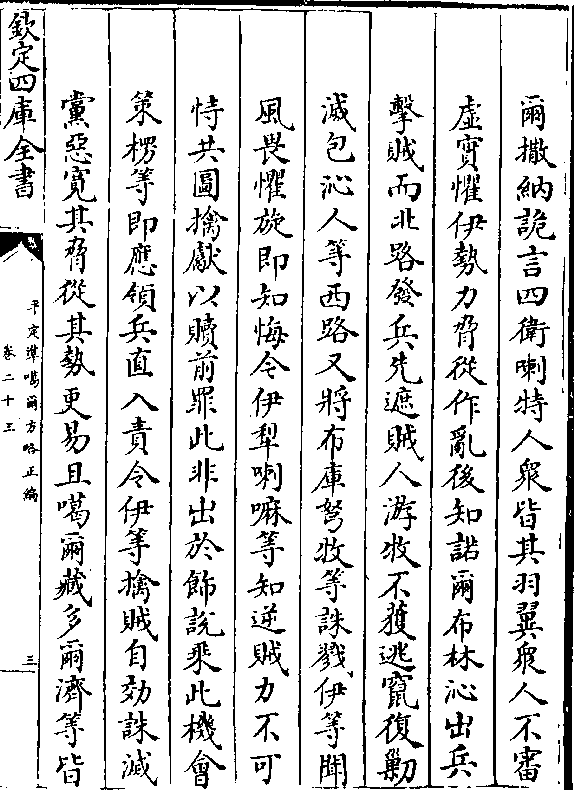 爾撒納詭言四衛喇特人衆皆其羽翼衆人不審
虛實懼伊勢力脅從作亂後知諾爾布林沁出兵
擊賊而北路發兵先遮賊人游牧不獲逃竄復勦
滅包沁人等西路又將布庫努牧等誅戮伊等聞
風畏懼旋即知悔令伊犁喇嘛等知逆賊力不可
恃共圖擒獻以贖前罪此非出於飾說乘此機會
策楞等即應領兵直入責令伊等擒賊自効誅滅
黨惡寬其脅從其勢更易且噶爾藏多爾濟等皆
欽定四庫全書
平定準噶爾方略正編
卷二十三
三